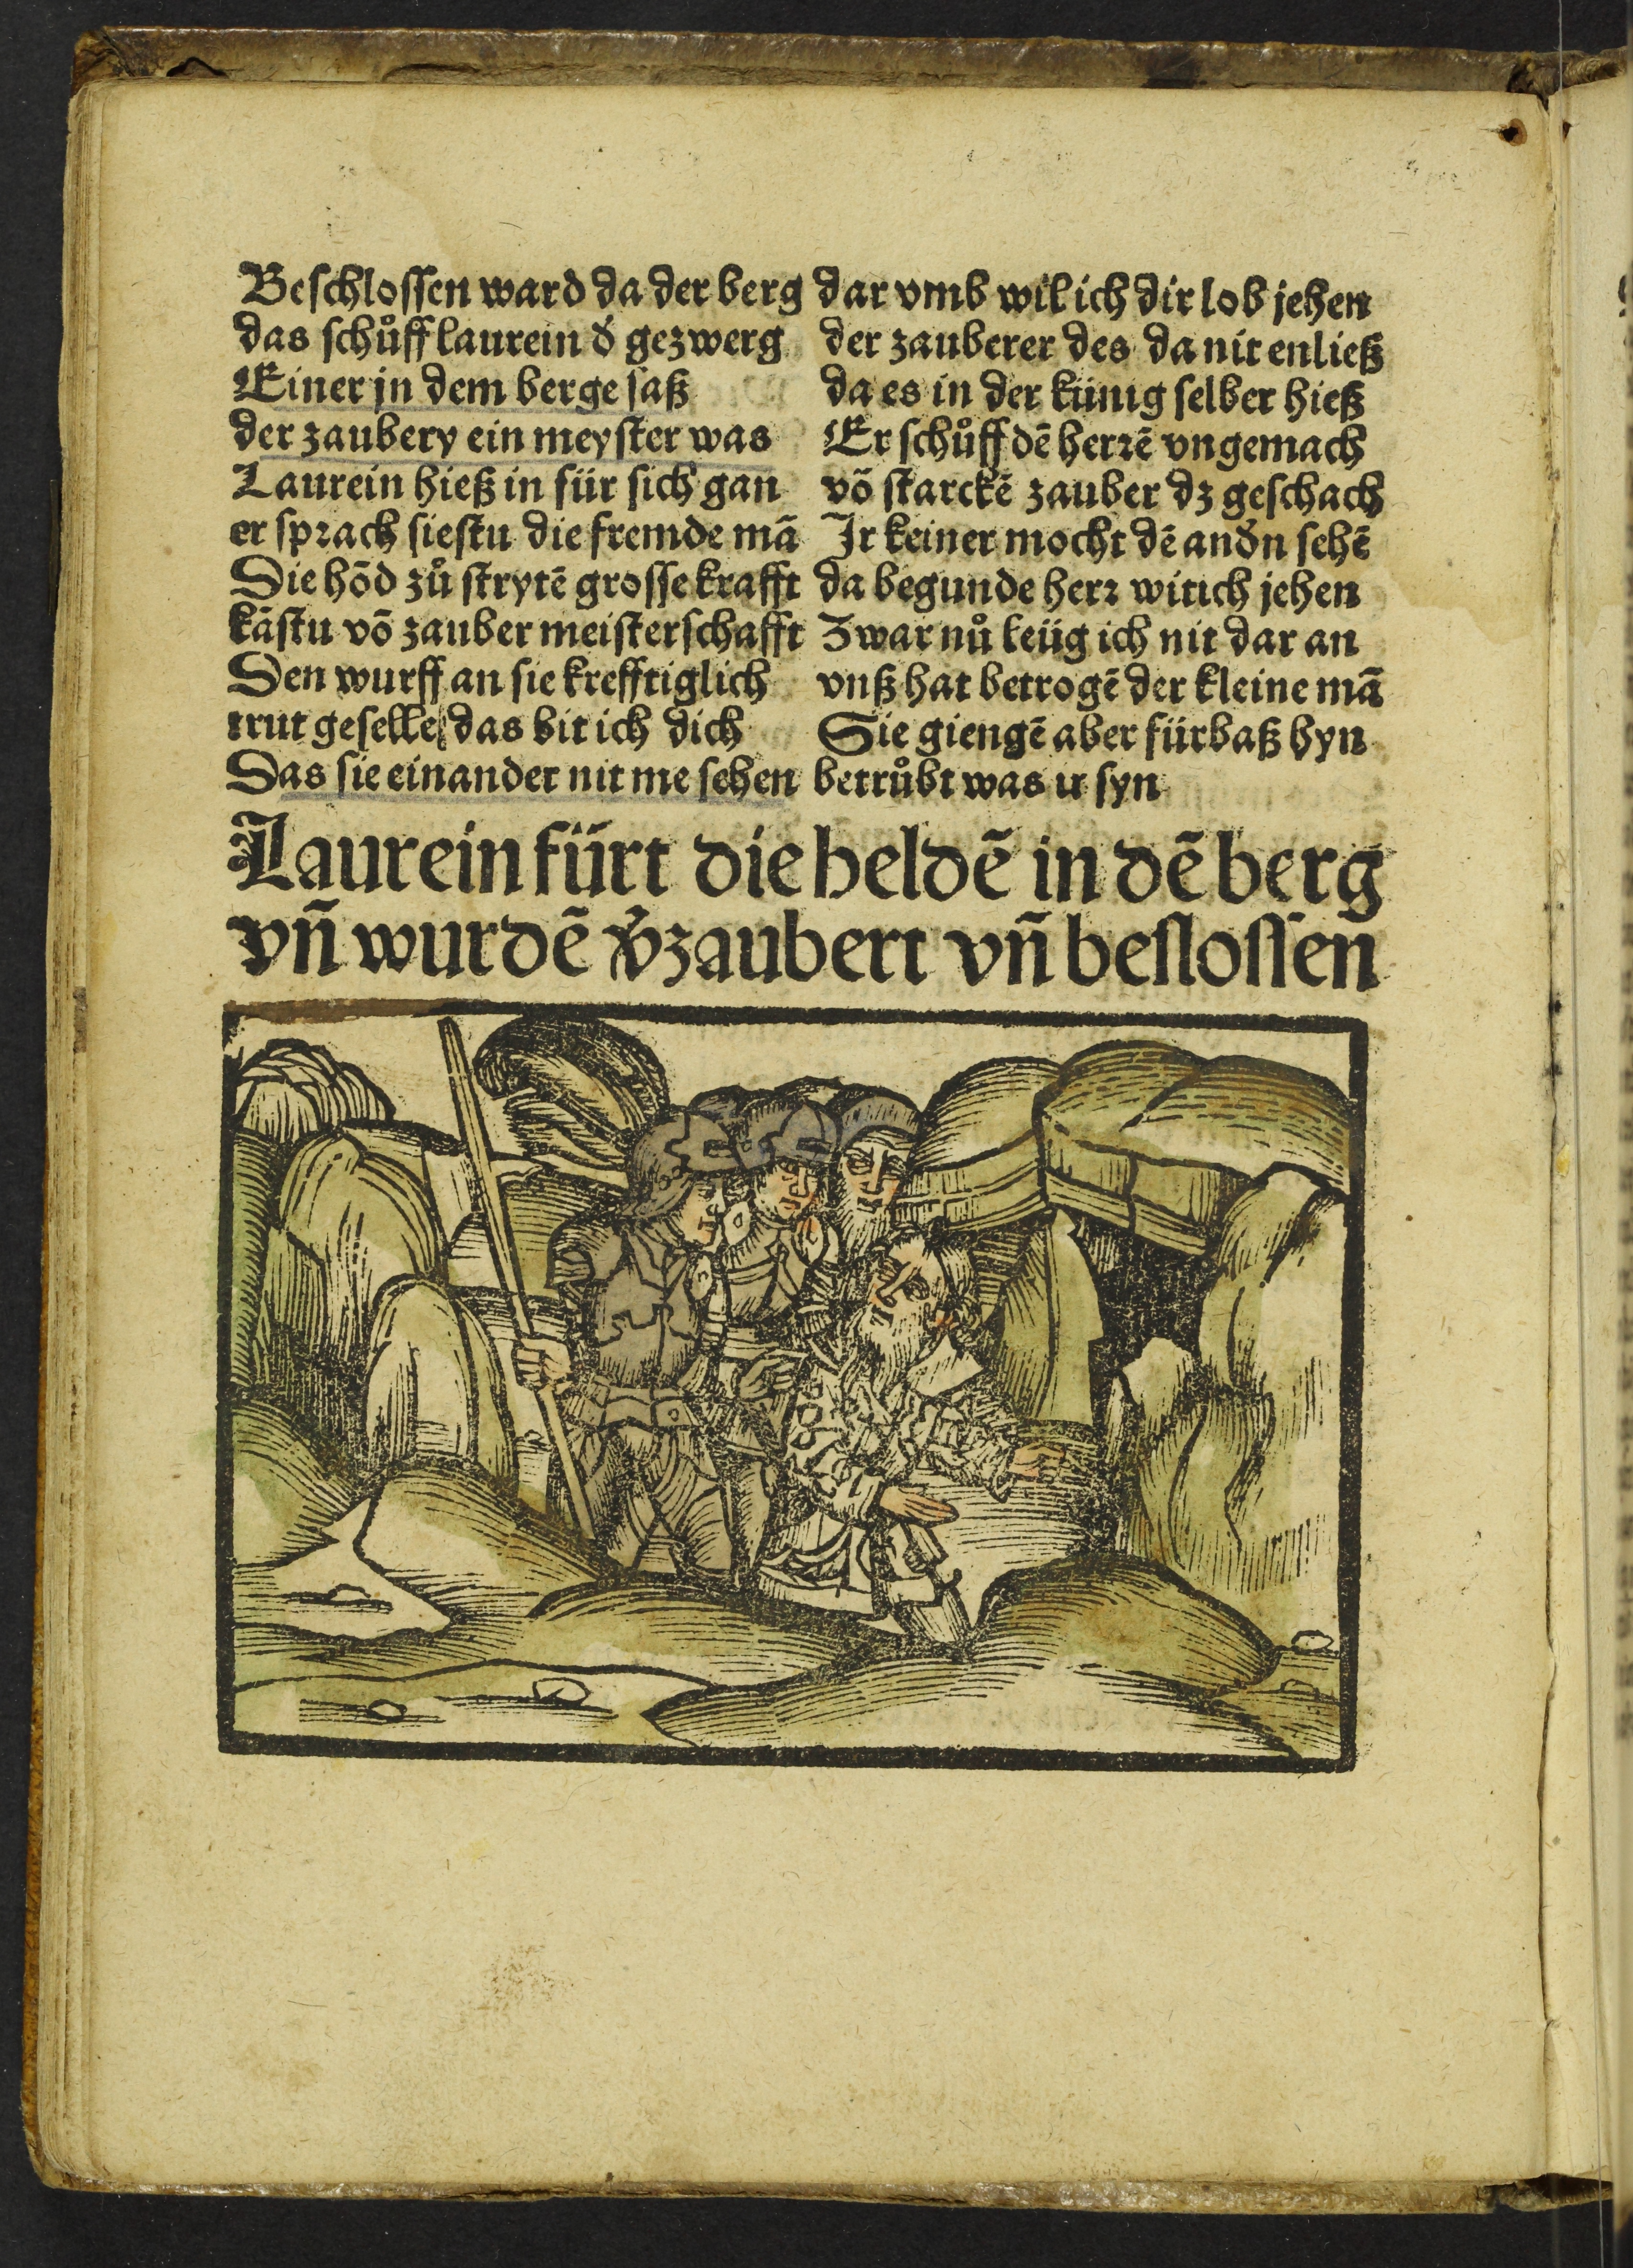 Beschlossen ward da der berg
das schůff laurein d̕ gezwerg
Einer in dem berge saß
der zaubery ein meyster was
Laurein hieß in für sich gan
er sprach siestu die fremde mā
Die hōd zů strytē grosse krafft
kāstu vō zauber meisterschafft
Den wurff an sie krefftiglich
trut geselle das bit ich dich
Das sie einander nit me sehen
dar vmb wil ich dir lob jehen
der zauberer des da nit enließ
da es in der künig selber hieß
Er schůff dē herrē vngemach
vō starckē zauber dz geschach
Ir keiner mocht dē and̕n sehē
da begunde herr witich jehen
Zwar nů leüg ich nit dar an
vnß hat betrogē der kleine mā
Sie giengē aber fürbaß hyn
betrůbt was ir syn
Laurein fürt die heldē in dē berg
vn̄ wurdē v̕zaubert vn̄ beslossen